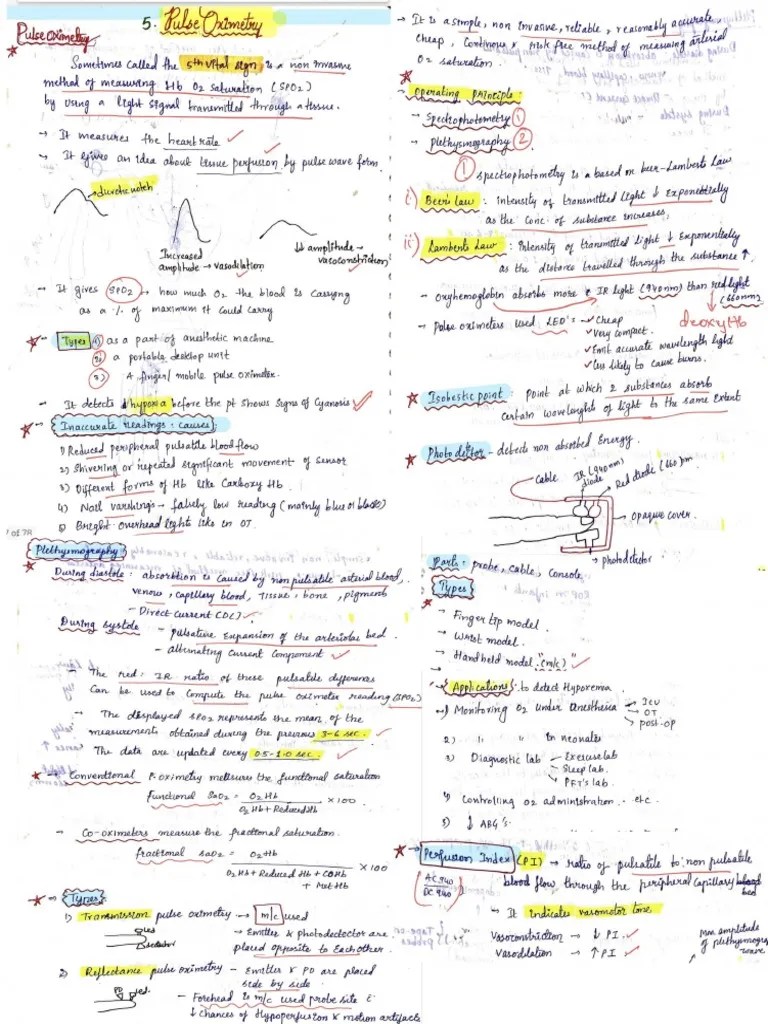 5. Pulse Oximetry
Pulse oximetry
Sometimes called the 5th vital sign, is a non invasive
method of measuring Hb O2 saturation (SPO2)
by using a light signal transmitted through a tissue.
→ It measures the heart rate
→ It gives an idea about tissue perfusion by pulse wave form
dicrotic notch
Increased
amplitude → vasodilation
↓↓ amplitude →
vasoconstriction
→ It gives SPO2 → how much O2 the blood is carrying
as a % of maximum it could carry
Types 1) as a part of anesthetic machine
2) a portable desktop unit
3) A finger/ mobile pulse oximeter.
→ It detects hypoxia before the pt shows signs of Cyanosis
Inaccurate Readings : causes
1) Reduced peripheral pulsatile blood flow
2) Shivering or repeated significant movement of sensor
3) Different forms of Hb like Carboxy Hb
4) Nail varnings → falsely low reading (mainly blue or black)
5) Bright overhead lights like in OT.
Plethysmography
During diastole : absorbtion is caused by non pulsatile arterial blood,
venous, capillary blood, tissue, bone, pigments
- Direct current (DC)
During systole - pulsative Expansion of the arteriolar bed
- alternating Current Component
- The red : IR ratio of these pulsatile differences
Can be used to compute the pulse oximeter reading (SPO2)
- The displayed SPO2 represents the mean of the
measurements obtained during the previous 3-6 sec.
- The data are updated every 0.5-1.0 sec.
→ Conventional P. oximetry measures the functional saturation
Functional SaO2 = O2Hb / O2Hb + Reduced Hb × 100
- Co-oximeters measure the fractional saturation.
fractional SaO2 = O2Hb / O2Hb + Reduced Hb + COHb + Met Hb × 100
→ Types
1) Transmission pulse oximetry → m/c used
- Emitter & photodectector are
placed opposite to Each other.
LED
detector
2) Reflectance pulse oximetry - Emitter & PD are placed
side by side
PD LED
- Forehead is m/c used probe site c̄
↓ Chances of Hypoperfusion & motion artifacts
→ It is a simple, non invasive, reliable, reasonably accurate,
cheap, continous & risk free method of measuring arterial
O2 saturation.
Operating Principle:
→ Spectrophotometry 1
→ Plethysmography 2
1 spectrophotometry is a based on beer-Lamberts Law
i) Beer's law : intensity of transmitted light ↓ Exponentially
as the conc. of substance increases,
ii) Lamberts Law : intensity of transmitted light ↓ Exponentially
as the distance travelled through the substance ↑
- Oxyhemoglobin absorbs more IR light (940nm) than red light
(660nm)
deoxy Hb
- Pulse oximeters used LED's - Cheap
Very compact.
Emit accurate wavelength light
less likely to cause burns.
Isobestic point : Point at which 2 substances absorb
certain wavelenghts of light to the same extent
Photo detector - detects non absorbed Energy.
Cable
IR (940nm)
diode
Red diode (660)nm
opaque cover.
photodetector
Parts : probe, cable, console.
Types
- Finger tip model.
- Wrist model.
- Handheld model (m/c)
Applications : to detect Hypoxemia
1) Monitoring O2 under Anesthesia → ICU
→ OT
→ post-op
2) " " in neonates
3) Diagnostic lab - Exercise lab
- Sleep lab.
- PFT's lab.
4) Controlling O2 administration. etc.
5) ↓ ABG's.
Perfusion Index (PI) → ratio of pulsatile to non pulsatile
blood flow through the peripheral capillary bed
(AC 940 / DC 940)
→ It indicates vasomotor tone
Vasoconstriction → ↓ PI
Vasodilation → ↑ PI
amplitude
of plethysmogra
wave